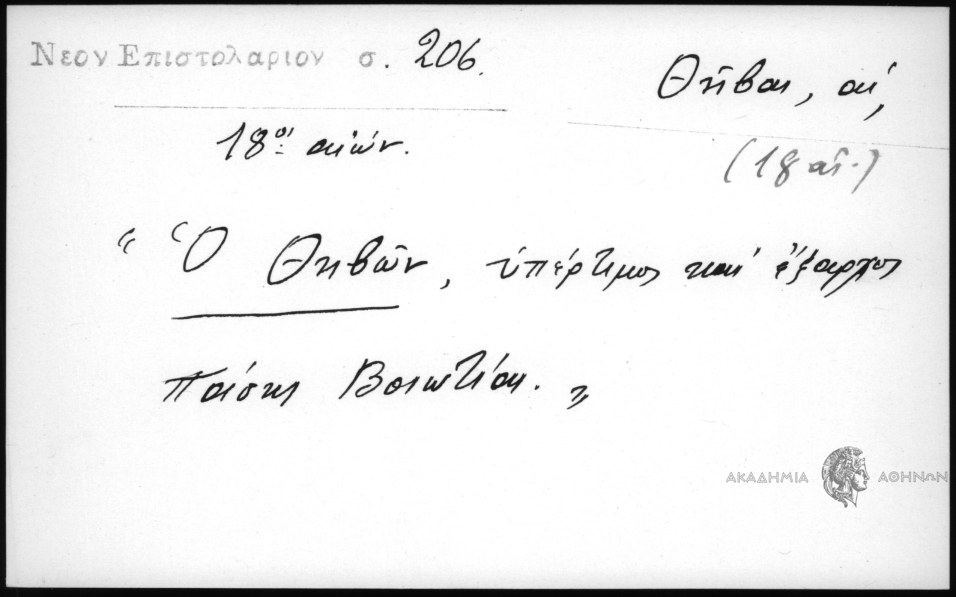 Νεον Επιστολαριον σ. 206.
Θῆβαι, αἱ,
18ος: αἰών.
(18 αἰ.)
“ Ὁ Θηβῶν, ὑπέρτιμος καὶ ἔξαρχος
πάσης Βοιωτίας. „
ΑΚΑΔΗΜΙΑ ΑΘΗΝΩΝ